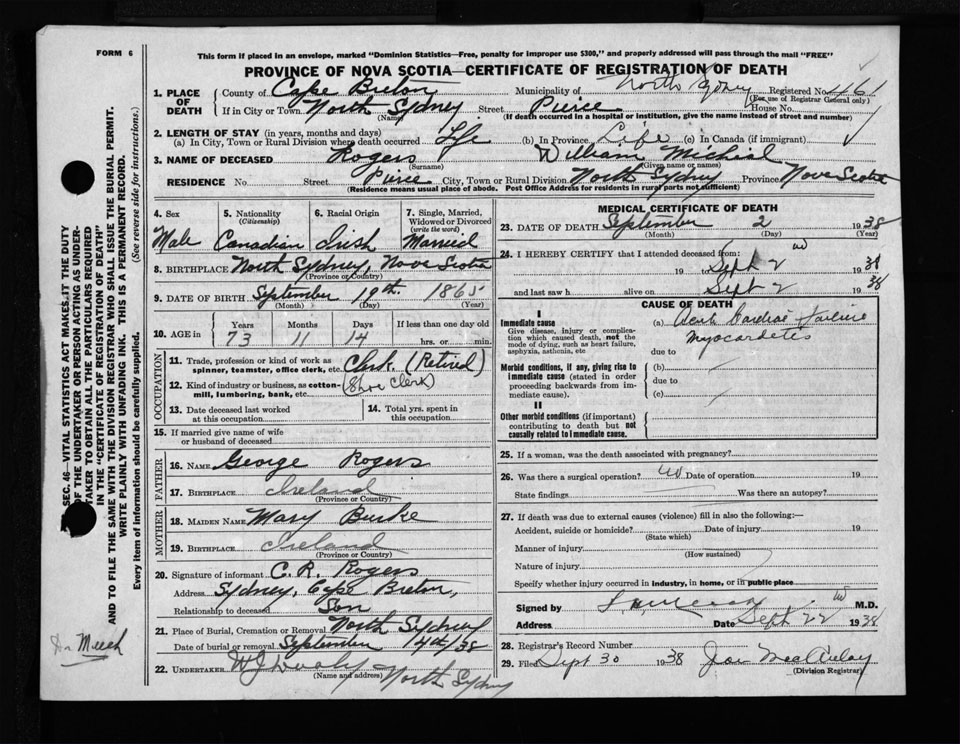 FORM 6
This form if placed in an envelope, marked "Dominion Statistics—Free, penalty for improper use $300," and properly addressed will pass through the mail "FREE"
PROVINCE OF NOVA SCOTIA—CERTIFICATE OF REGISTRATION OF DEATH
1. PLACE OF DEATH
County of Cape Breton Municipality of North Sydney Registered No. 461
(For use of Registrar General only)
If in City or Town North Sydney Street Pierce House No.
(Name) (If death occurred in a hospital or institution, give the name instead of street and number)
2. LENGTH OF STAY (in years, months and days)
(a) In City, Town or Rural Division where death occurred Life (b) In Province Life (c) In Canada (if immigrant)
3. NAME OF DECEASED Rogers William Micheal
(Surname) (Given name or names)
RESIDENCE No. Street Pierce City, Town or Rural Division North Sydney Province Nova Scotia
(Residence means usual place of abode. Post Office Address for residents in rural parts not sufficient)
4. Sex 5. Nationality (Citizenship) 6. Racial Origin 7. Single, Married, Widowed or Divorced (write the word)
Male Canadian Irish Married
8. BIRTHPLACE North Sydney, Nova Scotia
(Province or Country)
9. DATE OF BIRTH September 19th 1865
(Month) (Day) (Year)
10. AGE in Years Months Days If less than one day old
73 11 14 hrs. or min.
OCCUPATION
11. Trade, profession or kind of work as spinner, teamster, office clerk, etc. Clerk (Retired)
12. Kind of industry or business, as cotton-mill, lumbering, bank, etc. (Shoe Clerk)
13. Date deceased last worked at this occupation
14. Total yrs. spent in this occupation
15. If married give name of wife or husband of deceased
FATHER
16. NAME George Rogers
17. BIRTHPLACE Ireland
(Province or Country)
MOTHER
18. MAIDEN NAME Mary Burke
19. BIRTHPLACE Ireland
(Province or Country)
20. Signature of informant C. R. Rogers
Address Sydney, Cape Breton,
Relationship to deceased Son
21. Place of Burial, Cremation or Removal North Sydney
Date of burial or removal September 4th/38
22. UNDERTAKER
(Name and address) North Sydney
MEDICAL CERTIFICATE OF DEATH
23. DATE OF DEATH September 2 1938
(Month) (Day) (Year)
24. I HEREBY CERTIFY that I attended deceased from:
19 to Sept 2 1938
and last saw h alive on Sept 2 1938
CAUSE OF DEATH
I
Immediate cause
Give disease, injury or complication which caused death, not the mode of dying, such as heart failure, asphyxia, asthenia, etc
(a) Acute Cardiac Failure
Myocardetis
due to
Morbid conditions, if any, giving rise to immediate cause (stated in order proceeding backwards from immediate cause).
(b)
due to
(c)
II
Other morbid conditions (if important) contributing to death but not causally related to immediate cause.
25. If a woman, was the death associated with pregnancy?
26. Was there a surgical operation? no Date of operation 19
State findings Was there an autopsy?
27. If death was due to external causes (violence) fill in also the following:—
Accident, suicide or homicide? Date of injury 19
(State which)
Manner of injury
(How sustained)
Nature of injury
Specify whether injury occurred in industry, in home, or in public place
Signed by M.D.
Address Date Sept 22 1938
28. Registrar's Record Number
29. Filed Sept 30 1938
(Division Registrar)
SEC. 46—VITAL STATISTICS ACT MAKES IT THE DUTY
OF THE UNDERTAKER OR PERSON ACTING AS UNDERTAKER TO OBTAIN ALL THE PARTICULARS REQUIRED
IN THE "CERTIFICATE OF REGISTRATION OF DEATH"
AND TO FILE THE SAME WITH THE DIVISION REGISTRAR WHO SHALL ISSUE THE BURIAL PERMIT.
WRITE PLAINLY WITH UNFADING INK. THIS IS A PERMANENT RECORD.
Every item of information should be carefully supplied. (See reverse side for instructions.)